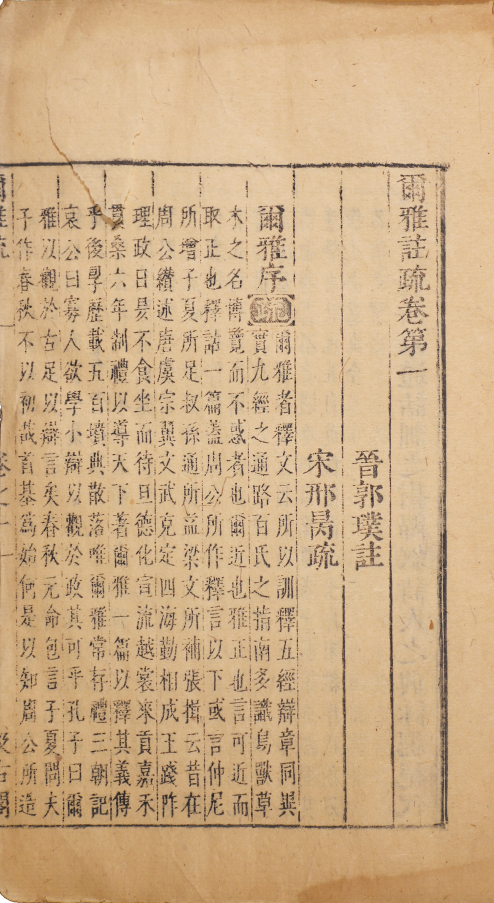 爾雅註疏卷第一
晉郭璞註
宋邢昺疏
爾雅序
疏
爾雅者釋文云所以訓釋五經辯章同異
實九經之通路百氏之指南多識鳥獸草
木之名博覽而不惑者也爾近也雅正也言可近而
取正也釋詁一篇蓋周公所作釋言以下或言仲尼
所增子夏所足叔孫通所益梁文所補張揖云昔在
周公纘述唐虞宗翼文武克定四海勤相成王踐阼
理政日昃不食坐而待旦德化宣流越裳來貢嘉禾
貫桑六年制禮以導天下著爾雅一篇以釋其義傳
乎後學歷載五百墳典散落唯爾雅常存禮三朝記
哀公曰寡人欲學小辯以觀於政其可乎孔子曰爾
雅以觀於古足以辯言矣春秋元命包言子夏問夫
子作春秋不以初哉首基為始何是以知周公所造
爾雅疏
卷之一
汲古閣